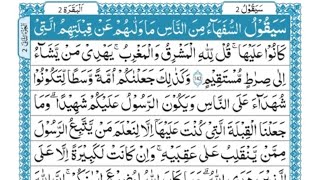 سَيَقُوْلُ 2
اَلْبَقَرَة 2
سَيَقُوْلُ السُّفَهَآءُ مِنَ النَّاسِ مَا وَلّٰىهُمْ عَنْ قِبْلَتِهِمُ الَّتِيْ
كَانُوْا عَلَيْهَا ؕ قُلْ لِّلّٰهِ الْمَشْرِقُ وَ الْمَغْرِبُ ؕ يَهْدِيْ مَنْ يَّشَآءُ
اِلٰى صِرَاطٍ مُّسْتَقِيْمٍ ۝ وَكَذٰلِكَ جَعَلْنٰكُمْ اُمَّةً وَّسَطًا لِّتَكُوْنُوْا
شُهَدَآءَ عَلَى النَّاسِ وَيَكُوْنَ الرَّسُوْلُ عَلَيْكُمْ شَهِيْدًا ؕ وَمَا
جَعَلْنَا الْقِبْلَةَ الَّتِيْ كُنْتَ عَلَيْهَاۤ اِلَّا لِنَعْلَمَ مَنْ يَّتَّبِعُ الرَّسُوْلَ
مِمَّنْ يَّنْقَلِبُ عَلٰى عَقِبَيْهِ ؕ وَاِنْ كَانَتْ لَكَبِيْرَةً اِلَّا عَلَى